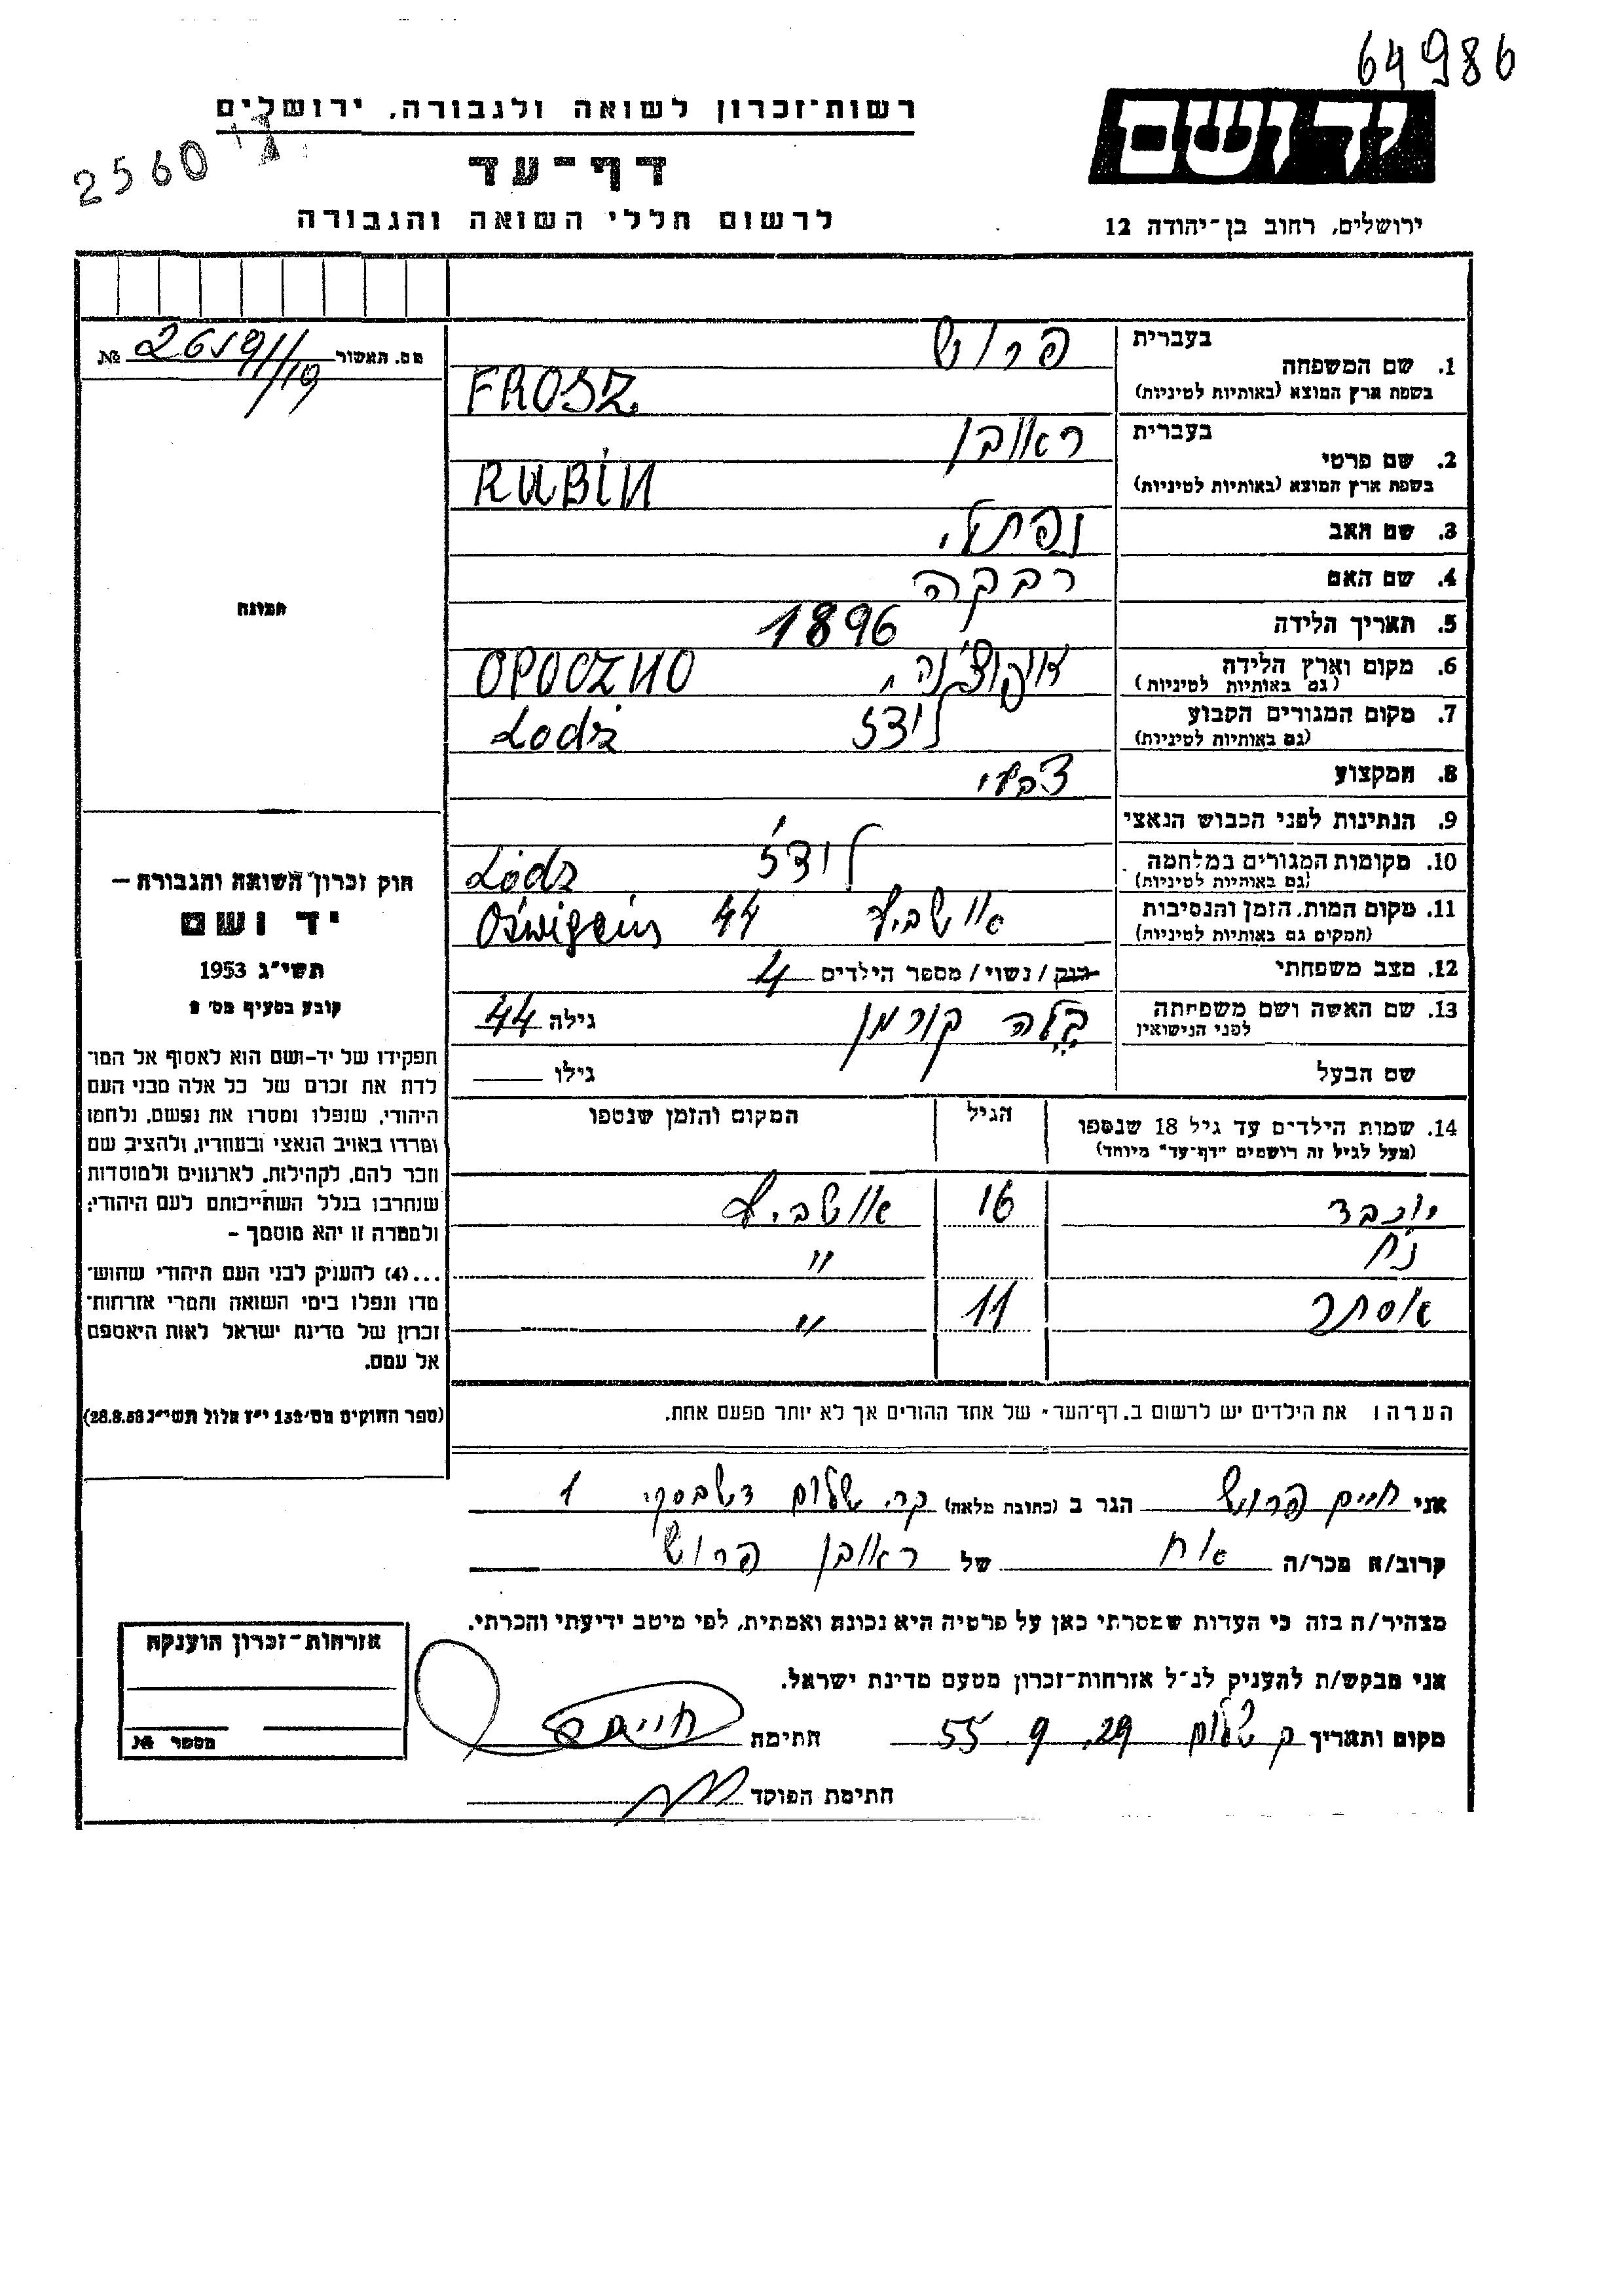 64986
יד ושם
רשות-זכרון לשואה ולגבורה, ירושלים
2560
דף-עד
לרשום חללי השואה והגבורה
ירושלים, רחוב בן-יהודה 12
מס. תאשור № 2619/1/19
בעברית פרוש
1. שם המשפחה
בשפת ארץ המוצא (באותיות לטיניות) FROSZ
בעברית ראובן
2. שם פרטי
בשפת ארץ המוצא (באותיות לטיניות) RUBIN
3. שם האב נפתלי
4. שם האם רבקה
5. תאריך הלידה 1896
6. מקום וארץ הלידה אופוצ'נה OPOCZNO
(גם באותיות לטיניות)
7. מקום המגורים הקבוע לודז Lodż
(גם באותיות לטיניות)
8. המקצוע צבעי
9. הנתינות לפני הכבוש הנאצי
10. מקומות המגורים במלחמה לודז' Lódz
(גם באותיות לטיניות)
11. מקום המות, הזמן והנסיבות אושביץ 44
(המקום גם באותיות לטיניות)
12. מצב משפחתי רוק / נשוי / מספר הילדים 4
13. שם האשה ושם משפחתה בלה קורמן גילה 44
לפני הנישואין
שם הבעל גילו
14. שמות הילדים עד גיל 18 שנספו הגיל המקום והזמן שנספו
(מעל לגיל זה רושמים "דף-עד" מיוחד)
יוכבד 16 אושביץ
נח "
אסתר 11 "
הערה: את הילדים יש לרשום ב„דף-העד" של אחד ההורים אך לא יותר מפעם אחת.
תמונה
חוק זכרון השואה והגבורה –
יד ושם
תשי"ג 1953
קובע בסעיף מס' 2
תפקידו של יד-ושם הוא לאסוף אל המו־
לדת את זכרם של כל אלה מבני העם
היהודי, שנפלו ומסרו את נפשם, נלחמו
ומרדו באויב הנאצי ובעוזריו, ולהציב שם
וזכר להם, לקהילות, לארגונים ולמוסדות
שנחרבו בגלל השתייכותם לעם היהודי;
ולמטרה זו יהא מוסמך –
...(4) להעניק לבני העם היהודי שהוש־
מדו ונפלו בימי השואה והמרי אזרחות־
זכרון של מדינת ישראל לאות היאספם
אל עמם.
(ספר החוקים מס' 132 י"ז אלול תשי"ג 28.8.53)
אני חיים פרוש הגר ב (כתובת מלאה) קר. שלום 1
קרוב/ה מכר/ה אח של ראובן פרוש
מצהיר/ה בזה כי העדות שמסרתי כאן על פרטיה היא נכונה ואמתית, לפי מיטב ידיעתי והכרתי.
אני מבקש/ת להעניק לנ"ל אזרחות-זכרון מטעם מדינת ישראל.
מקום ותאריך ק שלום 29. 9. 55 חתימה חיים פ
חתימת הפוקד
אזרחות-זכרון הוענקה
מספר №